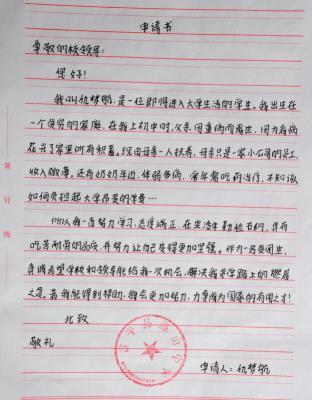 申请书
尊敬的校领导：
您好！
我叫仇梦皖，是一位即将进入大学生活的学生。我出生在
一个贫穷的家庭，在我上初中时，父亲因重病而离世，因为看病
花光了家里所有积蓄。现由母亲一人扶养，母亲只是一家小公司的员工，
收入微薄。还有奶奶年迈，体弱多病，常年需吃药治疗，不知该
如何负担起大学昂贵的学费…
所以我一直努力学习，态度端正，在生活中勤俭节约，具有
吃苦耐劳的品质，并努力让自己变得更加坚强。作为一名贫困生，
真诚希望学校和领导能给我一次机会，解决我求学路上的燃眉
之急。若我能得到帮助，我会更加努力，力争成为国家的有用之才！
此致
敬礼
申请人：仇梦皖
装
订
线